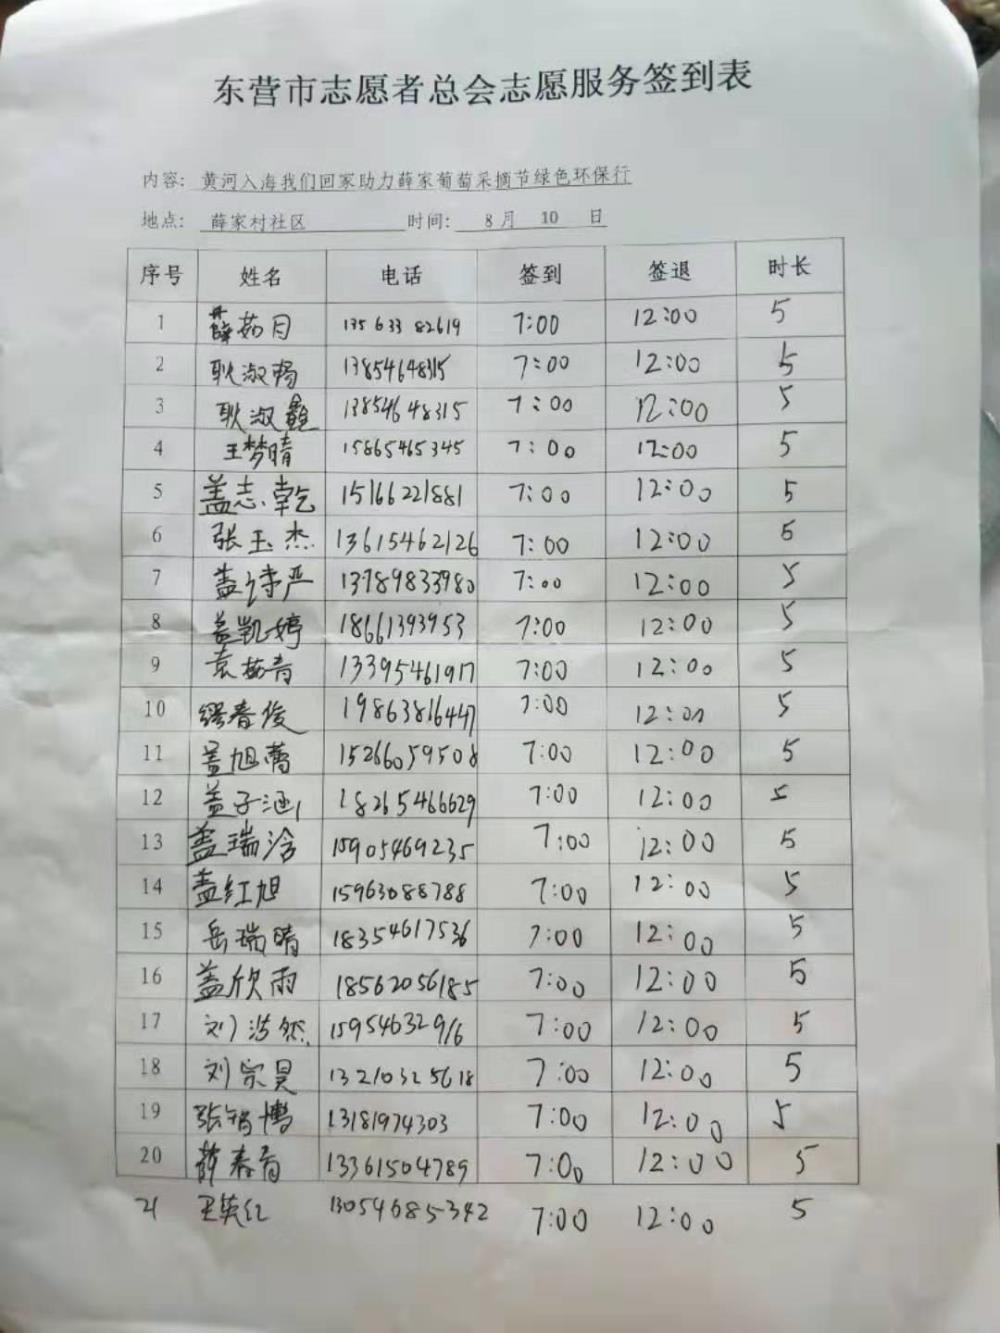 东营市志愿者总会志愿服务签到表
内容: 黄河入海我们回家助力薛家葡萄采摘节绿色环保行
地点: 薛家村社区 时间: 8 月 10 日
序号 姓名 电话 签到 签退 时长
1 薛茹月 13563382619 7:00 12:00 5
2 耿淑 13854648315 7:00 12:00 5
3 耿淑 13854648315 7:00 12:00 5
4 王梦晴 15865465345 7:00 12:00 5
5 盖志乾 15166221881 7:00 12:00 5
6 张玉杰 13615462126 7:00 12:00 5
7 盖诗严 13789833980 7:00 12:00 5
8 盖凯婷 18661393953 7:00 12:00 5
9 袁 青 13395461917 7:00 12:00 5
10 缪春俊 19863816447 7:00 12:00 5
11 盖旭蕾 15266059508 7:00 12:00 5
12 盖子涵 18265466629 7:00 12:00 5
13 盖瑞浛 15905469235 7:00 12:00 5
14 盖红旭 15963088788 7:00 12:00 5
15 岳瑞晴 18354617536 7:00 12:00 5
16 盖欣雨 18562056185 7:00 12:00 5
17 刘浩然 15954632916 7:00 12:00 5
18 刘宗昊 13210325618 7:00 12:00 5
19 张智博 13181974303 7:00 12:00 5
20 薛春青 13361504789 7:00 12:00 5
21 王英红 13054685342 7:00 12:00 5